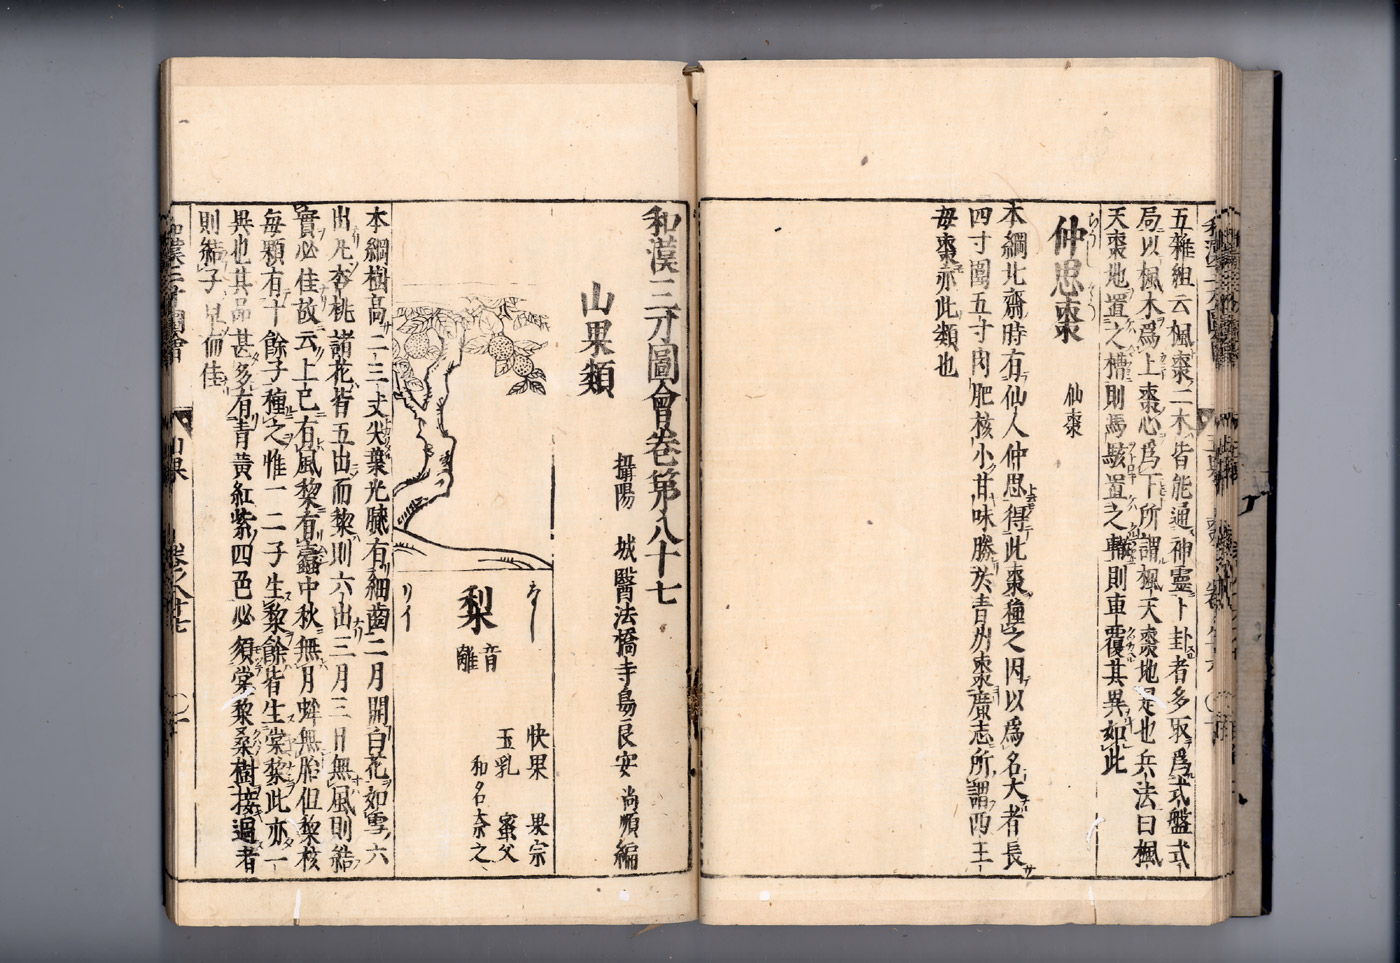 五雜組云楓棗二木皆能通神靈卜卦者多取爲式盤式
局以楓木爲上棗心爲下所謂楓天棗地是也兵法曰楓
天棗地置之槽則馬駭置之轍則車覆其異如此
仲思棗 仙棗
本綱北齋時有仙人仲思得此棗種之因以爲名大者長
四寸圍五寸肉肥核小甘味勝於青州棗廣志所謂西王
母棗亦此類也
和漢三才圖會卷第八十七
攝陽 城醫法橋寺島良安尚順編
山果類
梨
音離
リイ
快果 果宗
玉乳 蜜父
和名奈之
本綱樹高二三丈尖葉光膩有細齒二月開白花如雪六
出凡杏桃諸花皆五出而棃則六出三月三日無風則結
實必佳故云上巳有風棃有蠹中秋無月蚌無胎但棃核
每顆有十餘子種之惟一二子生棃餘皆生棠棃此亦一
異也其品甚多有青黃紅紫四色必須棠棃桑樹接過者
則結子早而佳
和漢三才圖會 山果 卷之八十七